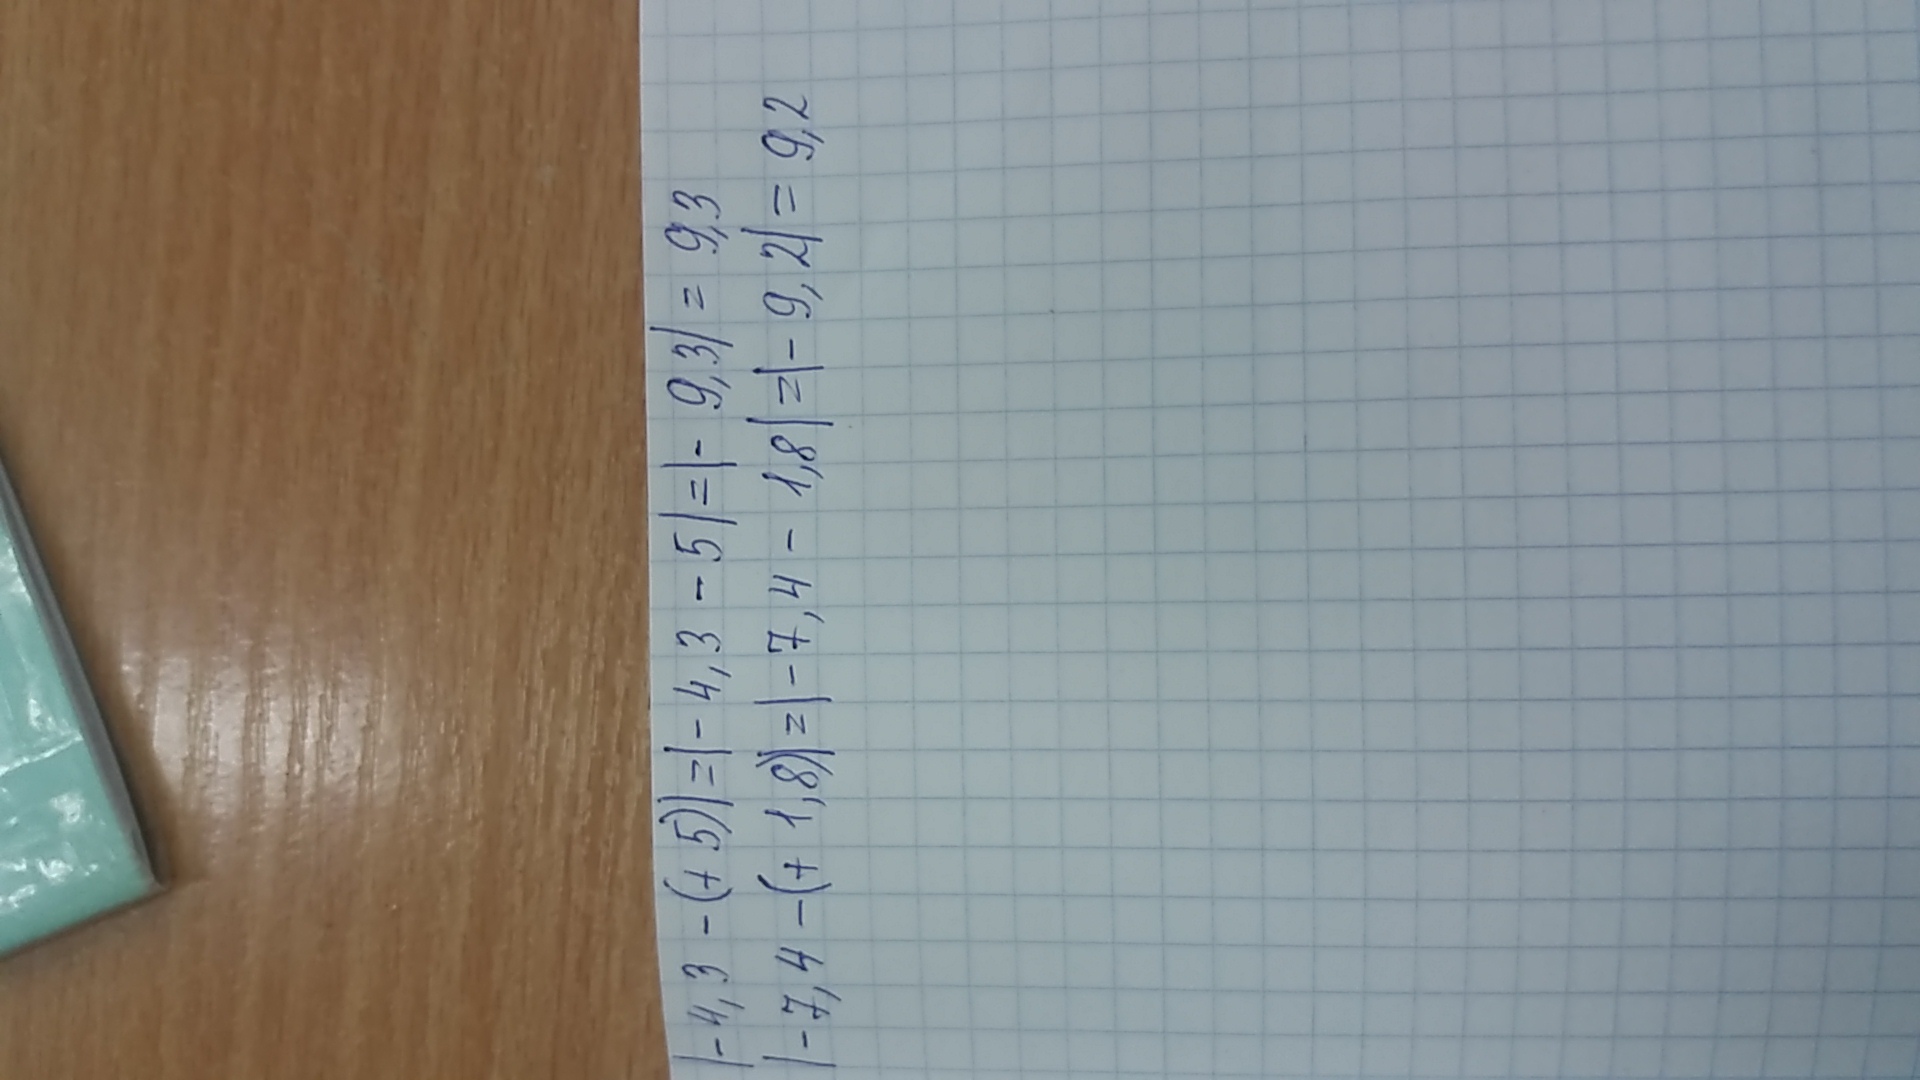 |-4,3-(+5)|=|-4,3-5|=|-9,3|=9,3
|-7,4-(+1,8)|=|-7,4-1,8|=|-9,2|=9,2